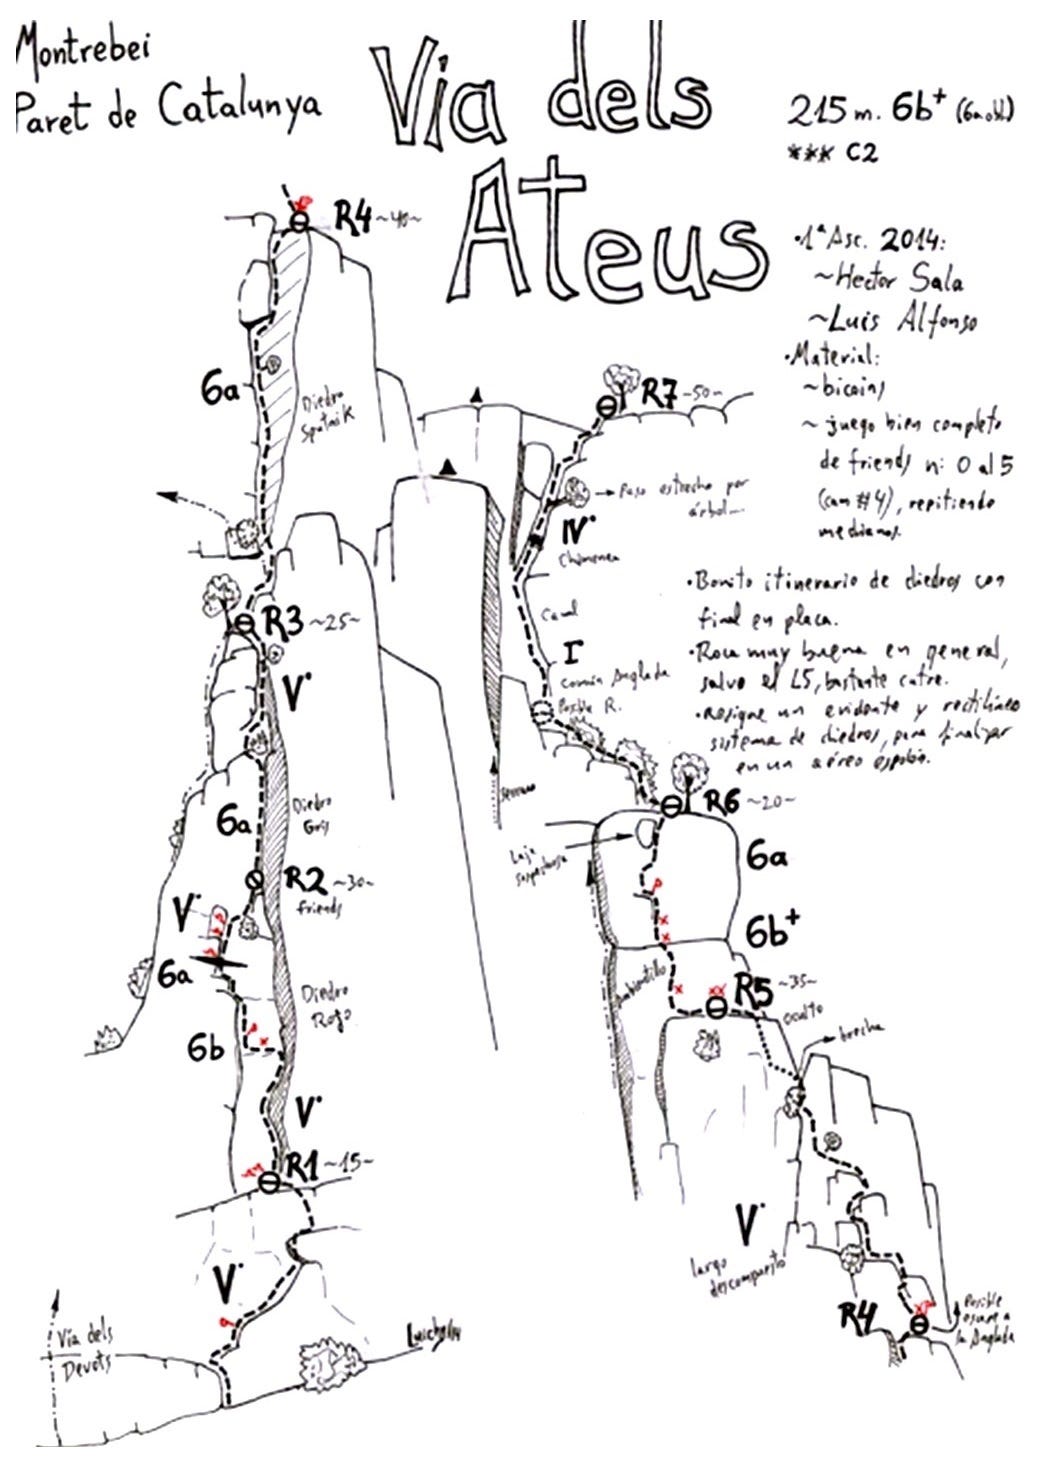 Montrebei
Paret de Catalunya
Vía dels
Ateus
215 m. 6b+ (6a obl)
*** C2
•1ª Asc. 2014:
~Hector Sala
~Luis Alfonso
•Material:
~bicains
~ juego bien completo
de friends nº 0 al 5
(cam #4), repitiendo
medianos.
•Bonito itinerario de diedros con
final en placa.
•Roca muy buena en general,
salvo el L5, bastante catre.
•Resigue un evidente y rectilíneo
sistema de diedros, para finalizar
en un aéreo espolón.
R4 ~40~
6a
Diedro
Sputnik
R3 ~25~
V°
6a
Diedro
Gris
R2 ~30~
friends
V°
6a
Diedro
Rojo
6b
V°
R1 ~15~
V°
Vía dels
Devots
R7 ~50~
→ Paso estrecho por
árbol...
IV°
Chimenea
Canal
I
común Anglada
Posible R.
R6 ~20~
Laja
sospechosa
6a
6b+
Ambientillo
R5 ~35~
oculto
brecha
V°
largo
descompuesto
R4
Posible
escape a
la Anglada